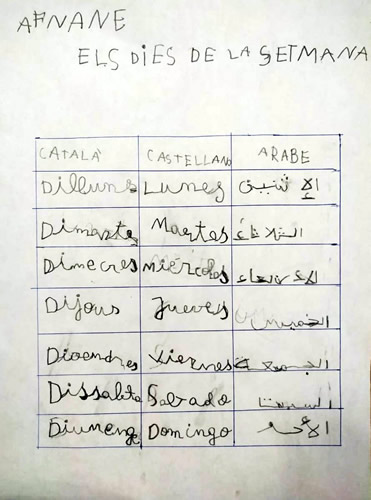 AFNANE
ELS DIES DE LA SETMANA
CATALÀ CASTELLANO ARABE
Dilluns Lunes
Dimarts Martes الثلاثاء
Dimecres Miércoles الأربعاء
Dijous Jueves الخميس
Divendres Viernes الجمعة
Dissabte Sabado
Diumenge Domingo الأحد